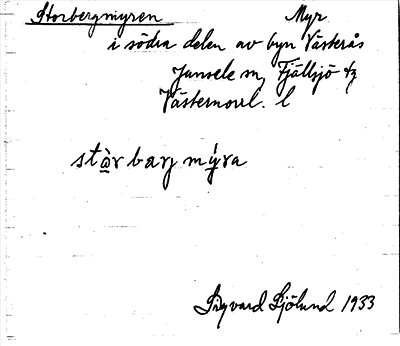 Storbergmyren Myr
i södra delen av byn Västerås
Junsele sn, Fjällsjö tg
Västernorrl. l
stàrbarj mýra
Sigvard Sjölund 1933